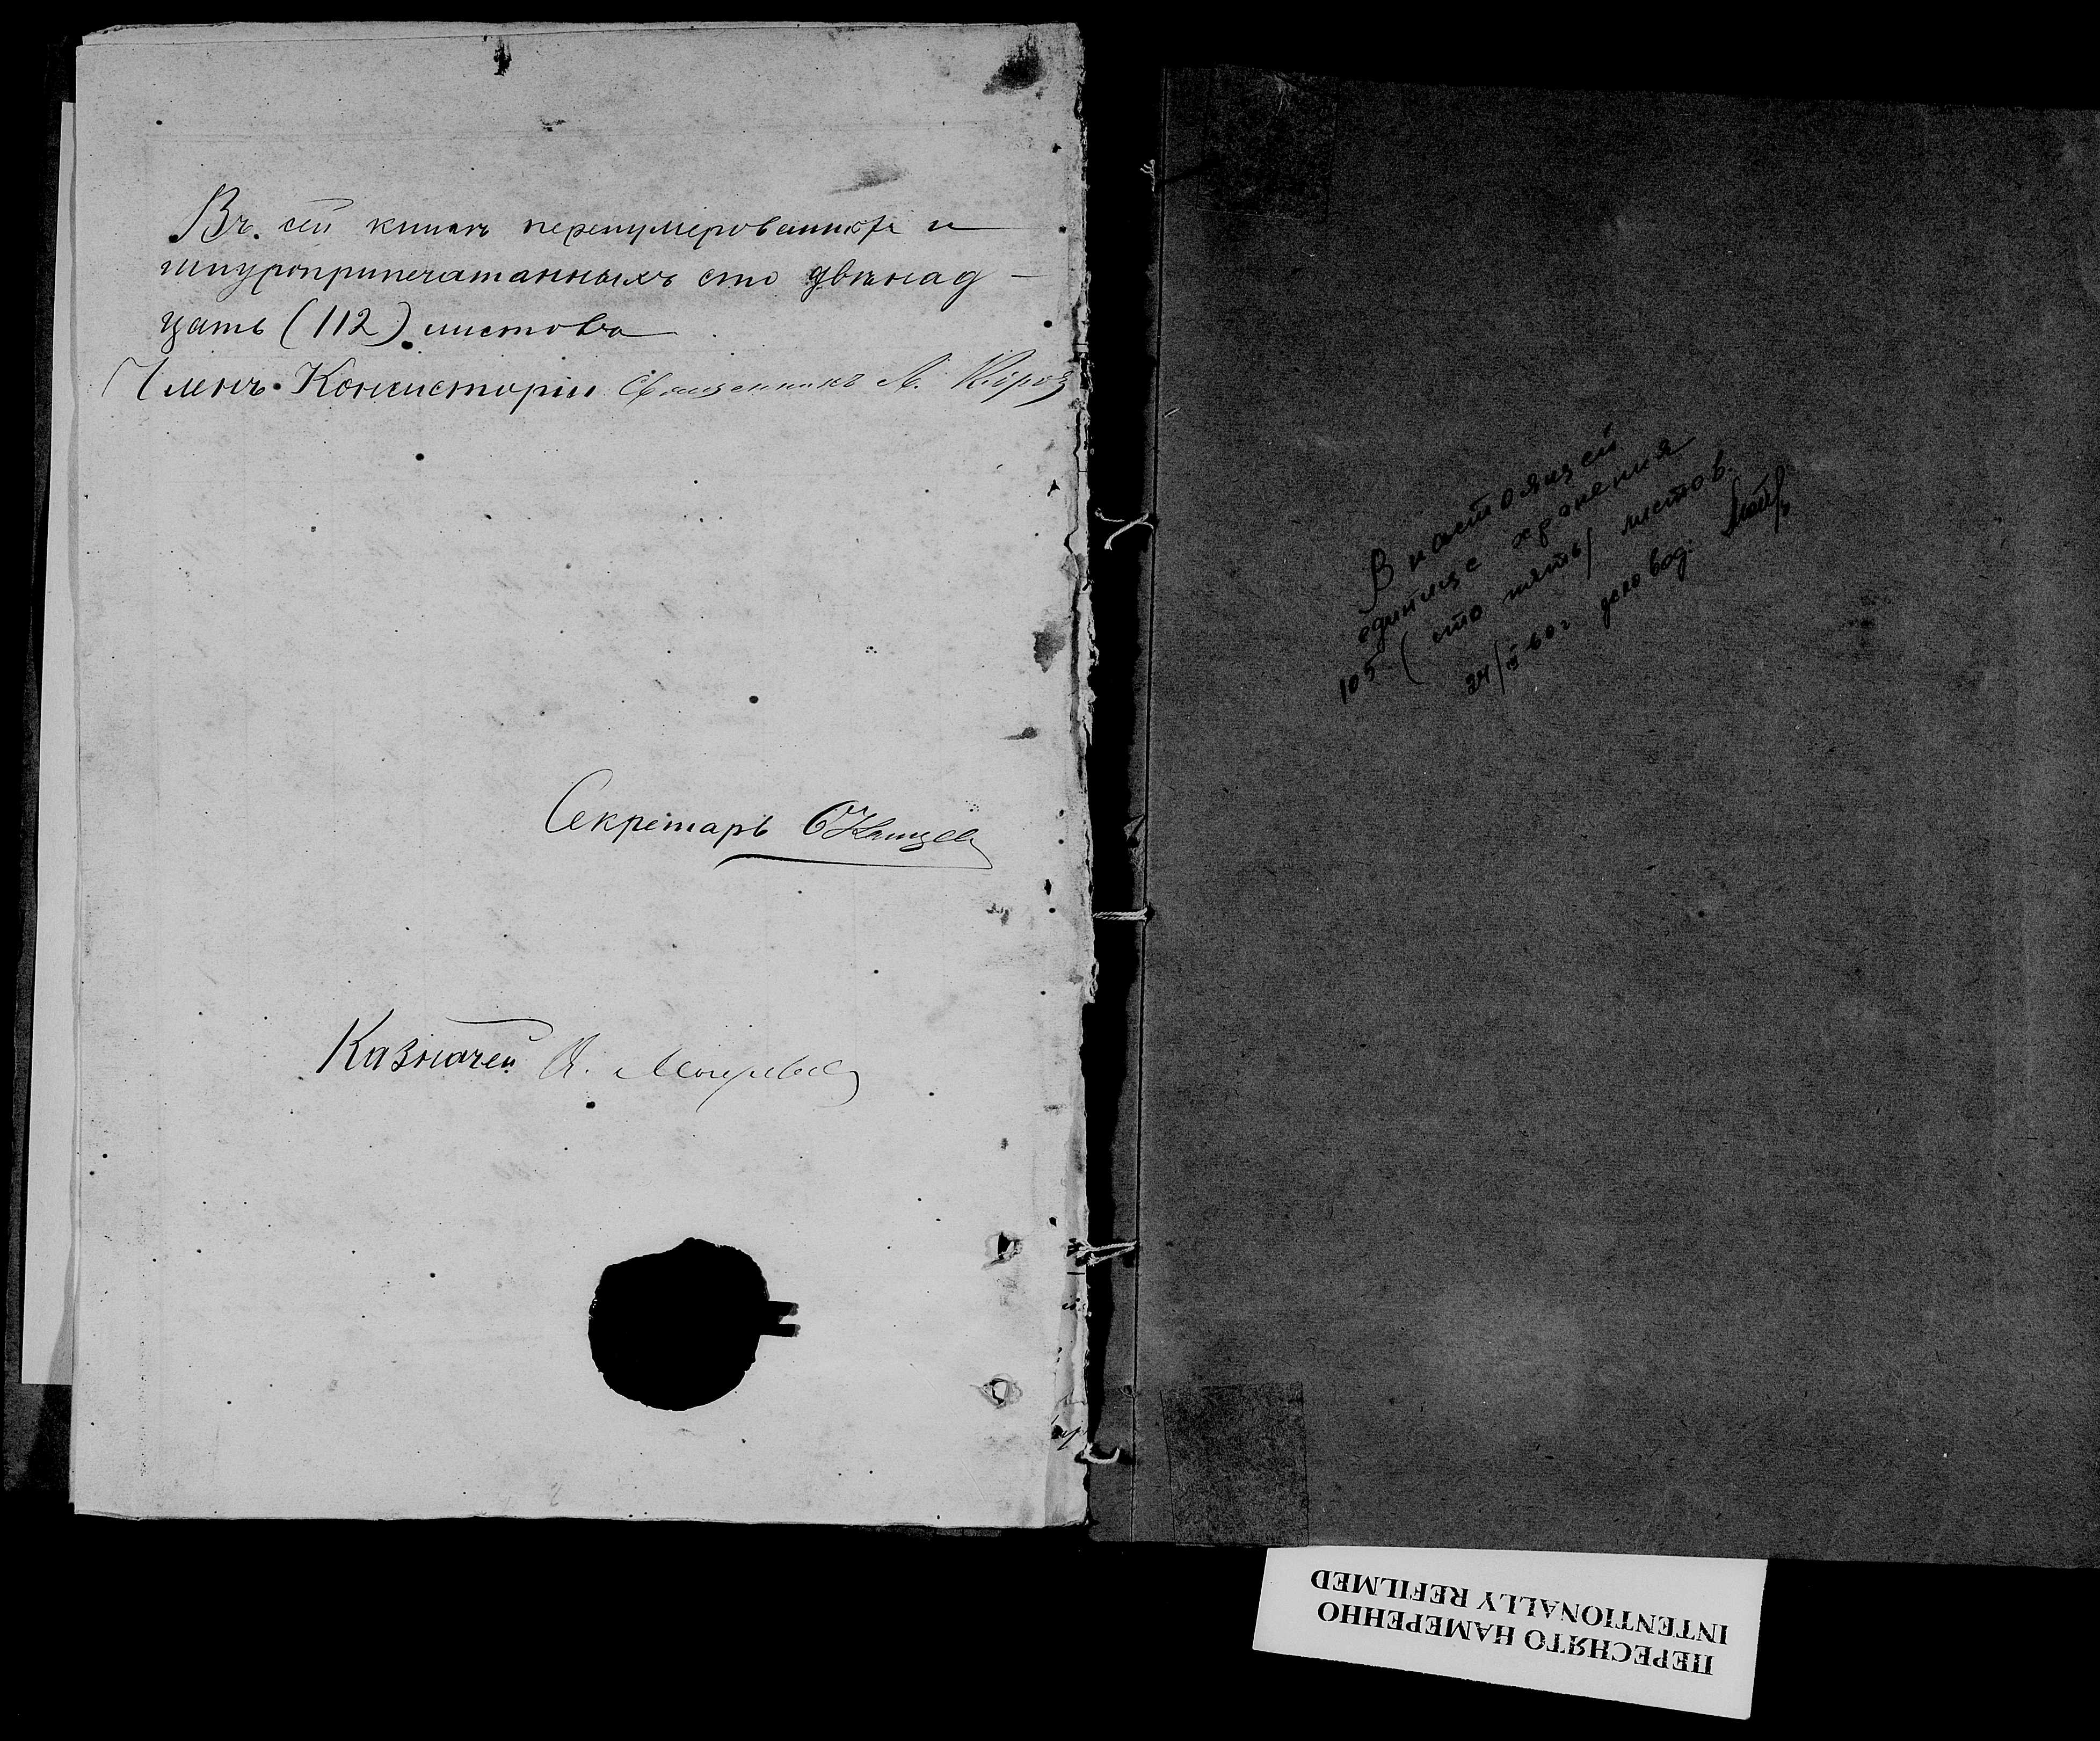 Въ сей книгѣ перенумерованныхъ и
шнуроприпечатанныхъ сто двѣнад-
цать (112) листовъ
Членъ Консисторіи Священникъ А.
Секретарь
Казначей
В настоящей
единице хранения
105 (сто пять) листов.
24/III 60 г деловод.
ПЕРЕСНЯТО НАМЕРЕННО
INTENTIONALLY REFILMED